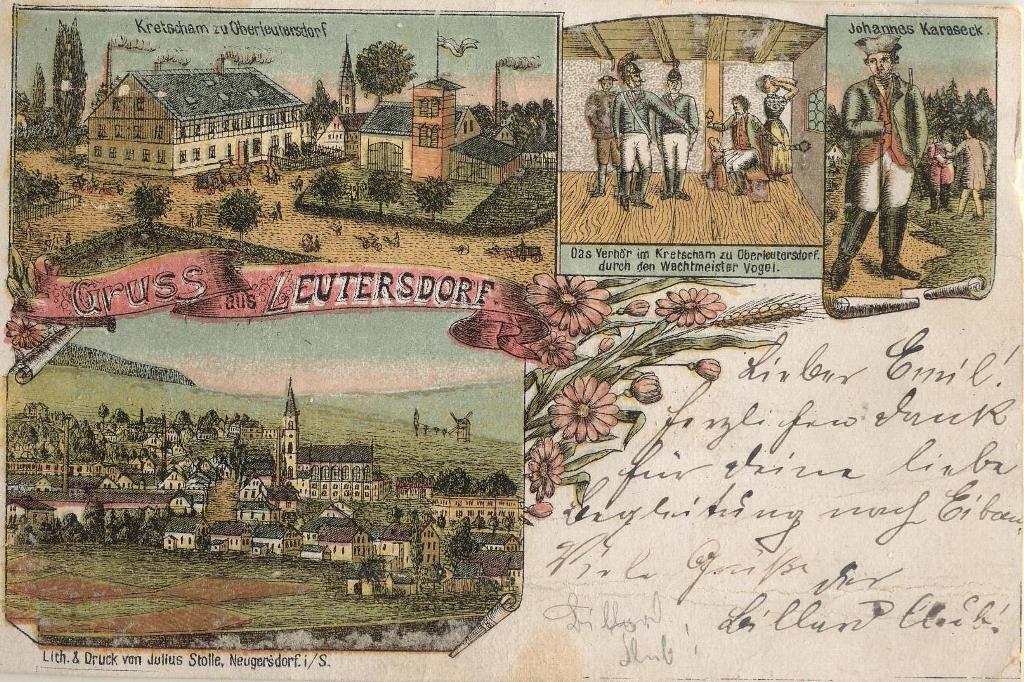 Kretscham zu Oberleutersdorf
Johannes Karaseck.
Das Verhör im Kretscham zu Oberleutersdorf.
durch den Wachtmeister Vogel.
Gruss aus LEUTERSDORF
Lieber Emil!
Herzlichen Dank
für deine liebe
Begleitung nach Eibau.
Viele Grüße
der
Billard Club!
Billard
Club!
Lith. & Druck von Julius Stolle, Neugersdorf. i/S.